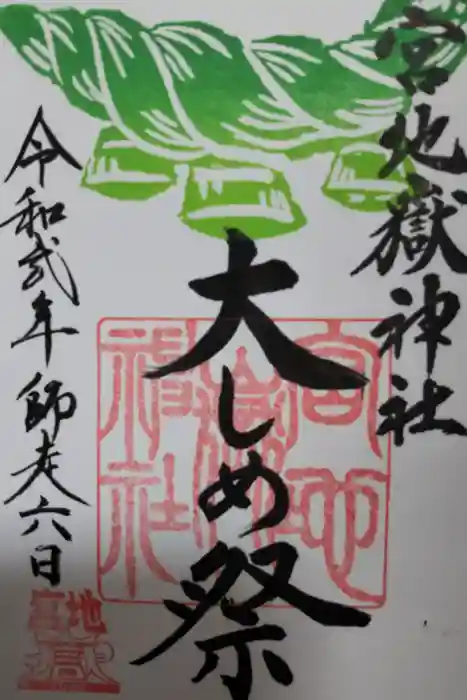 宮地嶽神社
大しめ祭
令和弐年師走六日
宮地嶽神社
宮地
嶽